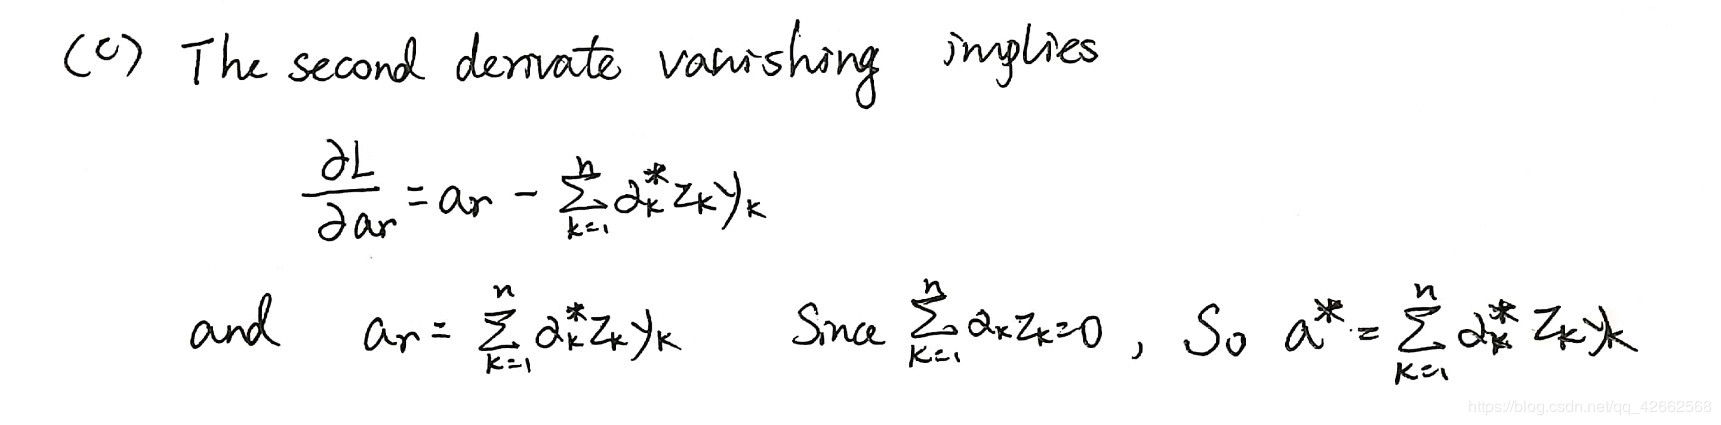 (c) The second derivate vanishing implies
∂L/∂ar = ar - ∑_{k=1}^{n} α_k^* z_k y_k
and ar = ∑_{k=1}^{n} α_k^* z_k y_k Since ∑_{k=1}^{n} α_k z_k = 0 , So a^* = ∑_{k=1}^{n} α_k^* z_k y_k
https://blog.csdn.net/qq_42662568